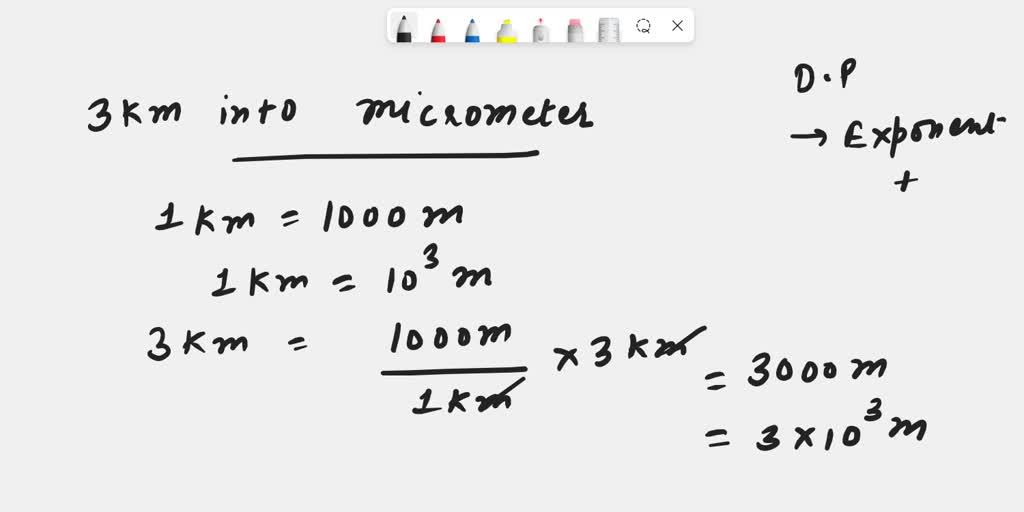 3 km into micrometer
D.P
→ Exponent
+
1 km = 1000 m
1 km = 10³ m
3 km = 1000m / 1 km × 3 km = 3000 m
= 3 × 10³ m